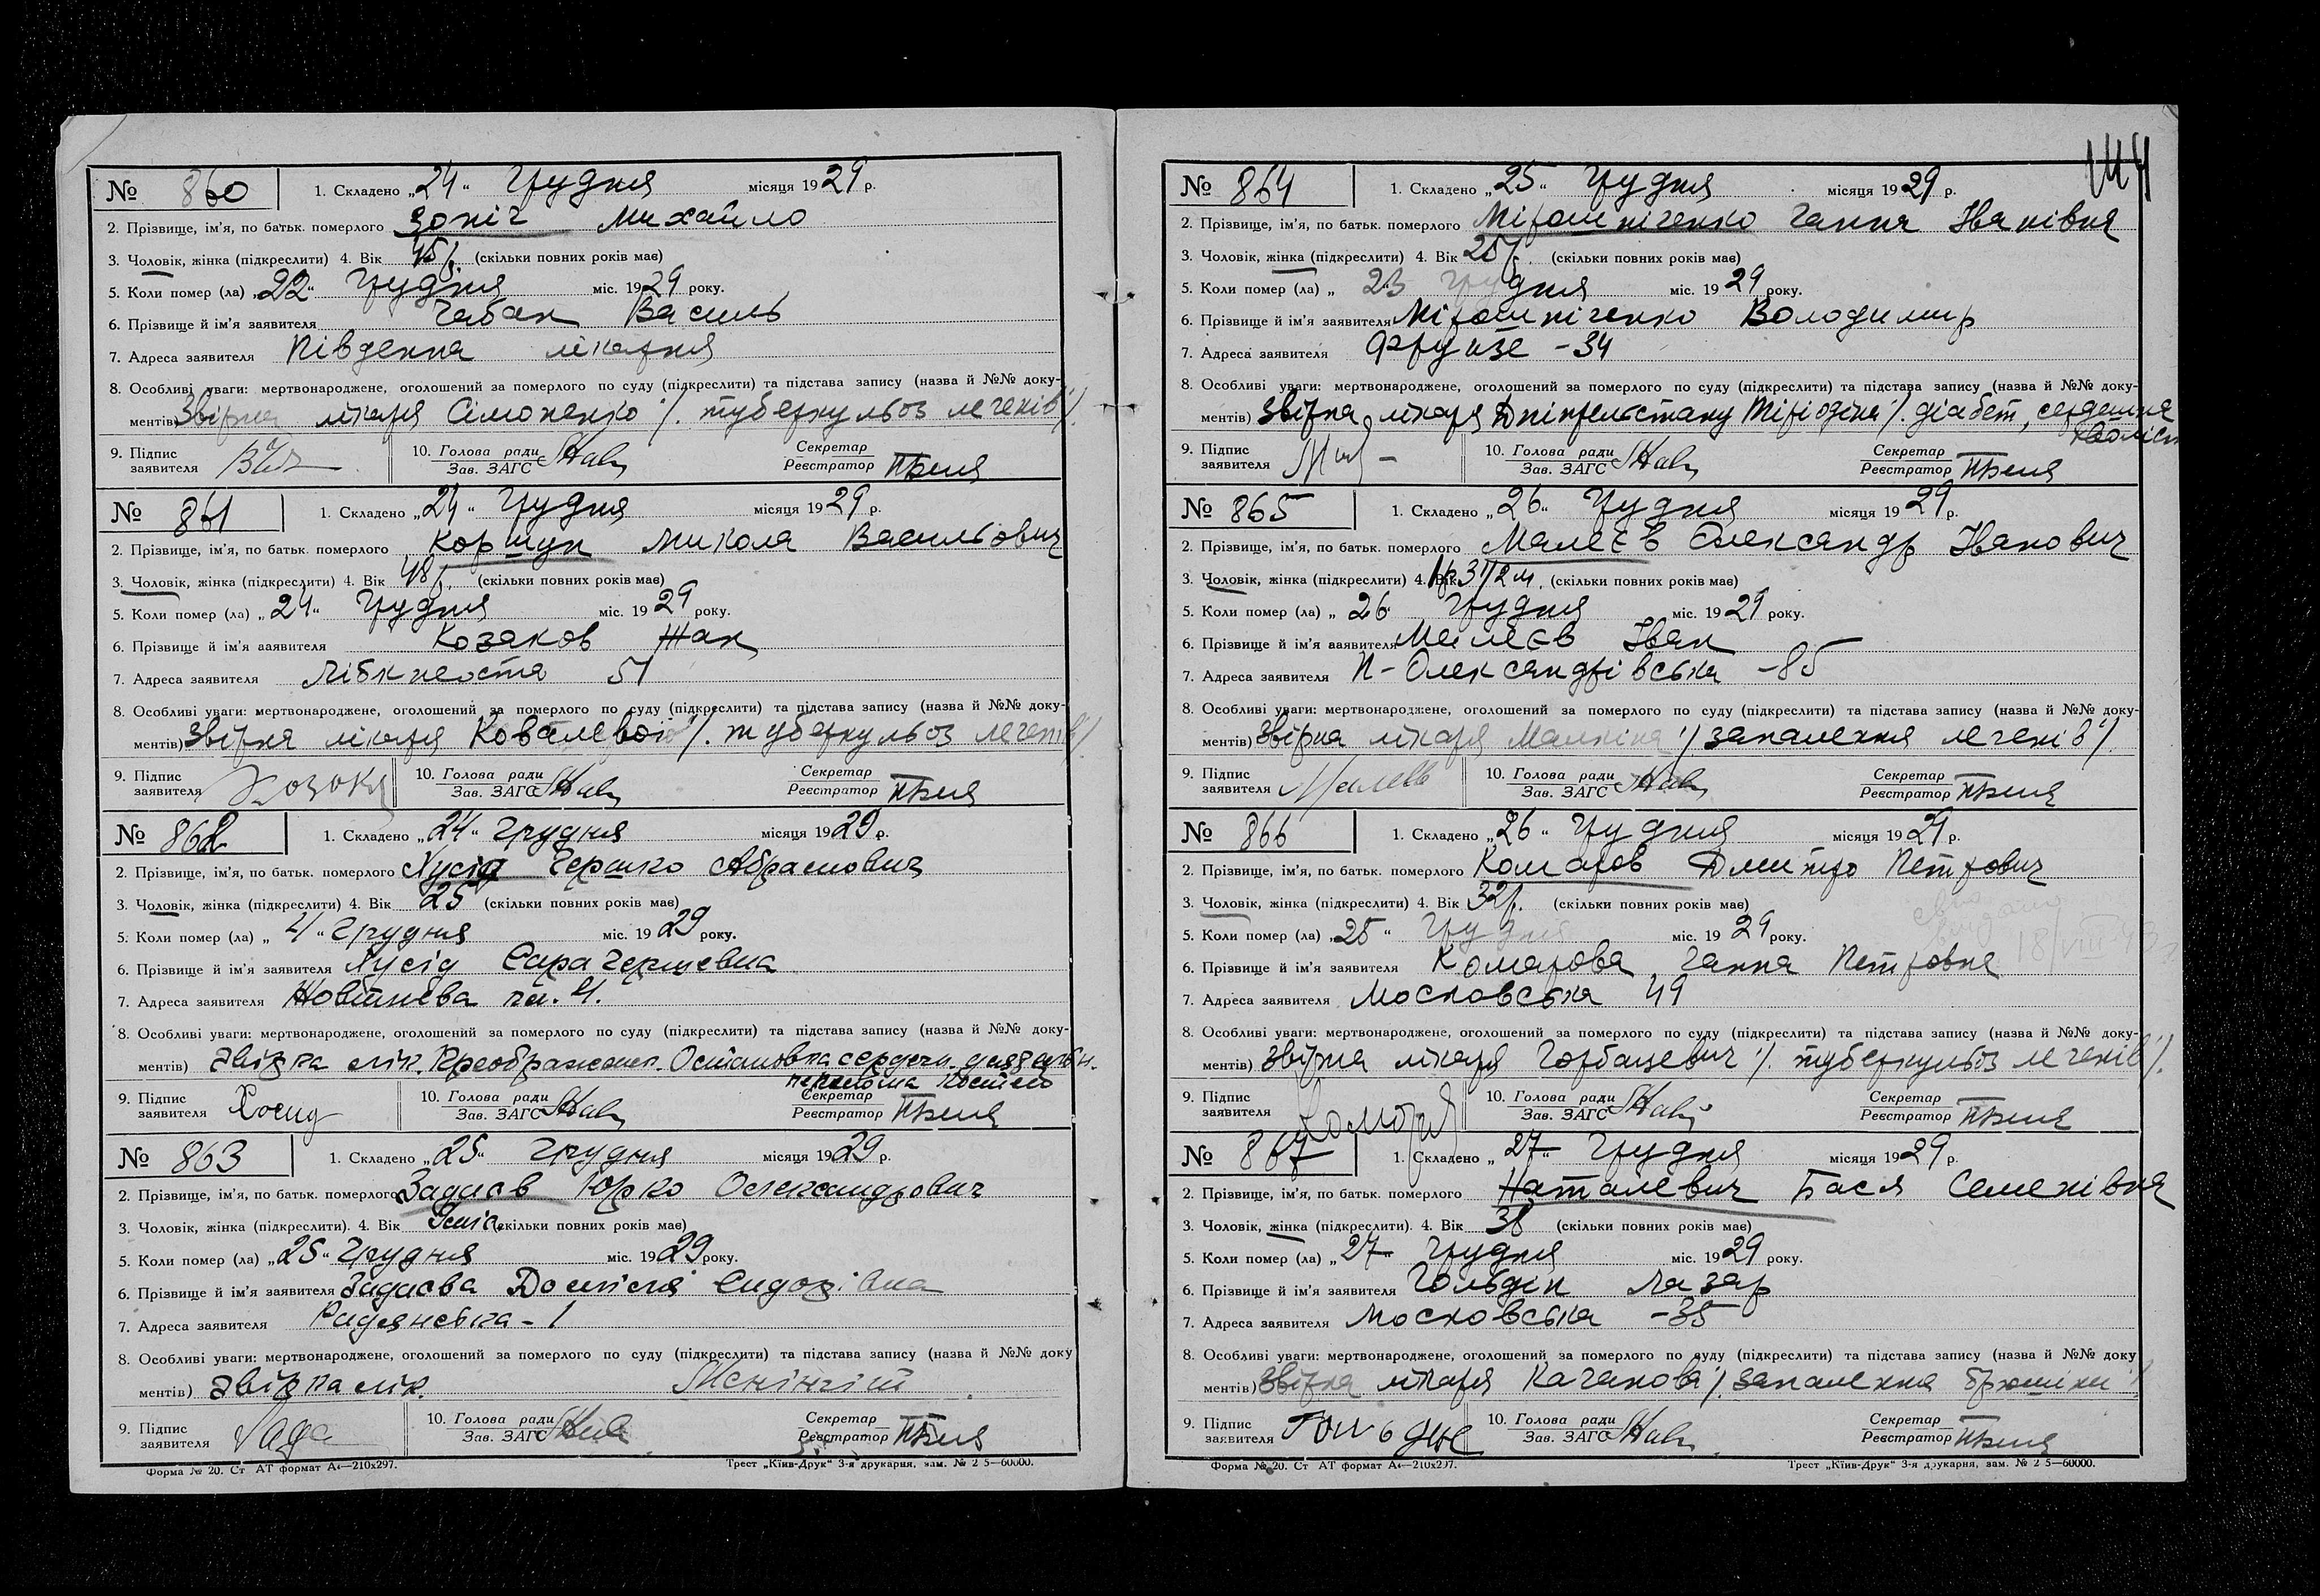 № 860 1. Складено „24“ Грудня місяця 1929 р.
2. Прізвище, ім'я, по батьк. померлого Зопіч Михайло
3. Чоловік, жінка (підкреслити) 4. Вік 45 р. (скільки повних років має)
5. Коли помер (ла) „22“ Грудня міс. 1929 року.
6. Прізвище й ім'я заявителя Чабан Василь
7. Адреса заявителя Південна лікарня
8. Особливі уваги: мертвонароджене, оголошений за померлого по суду (підкреслити) та підстава запису (назва й №№ доку-
ментів) Звірка лікаря Сімоненко /. туберкульоз легенів /.
9. Підпис заявителя 10. Голова ради Зав. ЗАГС Секретар Реєстратор
№ 861 1. Складено „24“ Грудня місяця 1929 р.
2. Прізвище, ім'я, по батьк. померлого Коршун Микола Васильович
3. Чоловік, жінка (підкреслити) 4. Вік 48 р. (скільки повних років має)
5. Коли помер (ла) „24“ Грудня міс. 1929 року.
6. Прізвище й ім'я заявителя Козаков Жан
7. Адреса заявителя Лібкнехта 51
8. Особливі уваги: мертвонароджене, оголошений за померлого по суду (підкреслити) та підстава запису (назва й №№ доку-
ментів) Звірка лікаря Ковалевої /. туберкульоз легенів /
9. Підпис заявителя 10. Голова ради Зав. ЗАГС Секретар Реєстратор
№ 862 1. Складено „24“ Грудня місяця 1929 р.
2. Прізвище, ім'я, по батьк. померлого Хусід Гершко Абрамович
3. Чоловік, жінка (підкреслити) 4. Вік 25 (скільки повних років має)
5. Коли помер (ла) „4“ Грудня міс. 1929 року.
6. Прізвище й ім'я заявителя Хусід Сара Гершевна
7. Адреса заявителя Жовтнева пл. 4.
8. Особливі уваги: мертвонароджене, оголошений за померлого по суду (підкреслити) та підстава запису (назва й №№ доку-
ментів) Звірка лік. Преображенк. Остановка сердечн.
9. Підпис заявителя Хосид 10. Голова ради Зав. ЗАГС Секретар Реєстратор
№ 863 1. Складено „25“ Грудня місяця 1929 р.
2. Прізвище, ім'я, по батьк. померлого Задаєв Юрко Олександрович
3. Чоловік, жінка (підкреслити). 4. Вік (скільки повних років має)
5. Коли помер (ла) „25“ Грудня міс. 1929 року.
6. Прізвище й ім'я заявителя Задаєва Сидорівна
7. Адреса заявителя Радянська - 1
8. Особливі уваги: мертвонароджене, оголошений за померлого по суду (підкреслити) та підстава запису (назва й №№ доку
ментів) Звірка лік. Менінгіт
9. Підпис заявителя 10. Голова ради Зав. ЗАГС Секретар Реєстратор
Форма № 20. Ст АТ формат А4—210х297. Трест „Київ-Друк“ 3-я друкарня, зам. № 2 5—60000.
№ 864 1. Складено „25“ Грудня місяця 1929 р.
2. Прізвище, ім'я, по батьк. померлого Мірошніченко Ганна Іванівна
3. Чоловік, жінка (підкреслити) 4. Вік (скільки повних років має)
5. Коли помер (ла) „23“ Грудня міс. 1929 року.
6. Прізвище й ім'я заявителя Мірошніченко Володимир
7. Адреса заявителя Фрунзе - 34
8. Особливі уваги: мертвонароджене, оголошений за померлого по суду (підкреслити) та підстава запису (назва й №№ доку-
ментів) Звірка лікаря Дніпрельстану /. діабет, сердешна
9. Підпис заявителя 10. Голова ради Зав. ЗАГС Секретар Реєстратор
№ 865 1. Складено „26“ Грудня місяця 1929 р.
2. Прізвище, ім'я, по батьк. померлого Малєєв Олександр Іванович
3. Чоловік, жінка (підкреслити) 4. Вік 1 р. 3 1/2 м. (скільки повних років має)
5. Коли помер (ла) „26“ Грудня міс. 1929 року.
6. Прізвище й ім'я заявителя Малєєв Іван
7. Адреса заявителя П-Олександрівська - 85
8. Особливі уваги: мертвонароджене, оголошений за померлого по суду (підкреслити) та підстава запису (назва й №№ доку-
ментів) Звірка лікаря Малкіна / запалення легенів /.
9. Підпис заявителя 10. Голова ради Зав. ЗАГС Секретар Реєстратор
№ 866 1. Складено „26“ Грудня місяця 1929 р.
2. Прізвище, ім'я, по батьк. померлого Комаров Дмитро Петрович
3. Чоловік, жінка (підкреслити) 4. Вік 32 р. (скільки повних років має)
5. Коли помер (ла) „25“ Грудня міс. 1929 року.
6. Прізвище й ім'я заявителя Комарова Ганна Петровна
7. Адреса заявителя Московська 49
8. Особливі уваги: мертвонароджене, оголошений за померлого по суду (підкреслити) та підстава запису (назва й №№ доку-
ментів) Звірка лікаря Горбацевич /. туберкульоз легенів /.
9. Підпис заявителя 10. Голова ради Зав. ЗАГС Секретар Реєстратор
№ 867 1. Складено „27“ Грудня місяця 1929 р.
2. Прізвище, ім'я, по батьк. померлого Наталевич Бася Семенівна
3. Чоловік, жінка (підкреслити). 4. Вік 38 (скільки повних років має)
5. Коли помер (ла) „27“ Грудня міс. 1929 року.
6. Прізвище й ім'я заявителя Гольдін Лазар
7. Адреса заявителя Московська - 35
8. Особливі уваги: мертвонароджене, оголошений за померлого по суду (підкреслити) та підстава запису (назва й №№ доку
ментів) Звірка лікаря Качанова /. запалення брюшини /
9. Підпис заявителя 10. Голова ради Зав. ЗАГС Секретар Реєстратор
Форма № 20. Ст АТ формат А4—210х297. Трест „Київ-Друк“ 3-я друкарня, зам. № 2 5—60000.